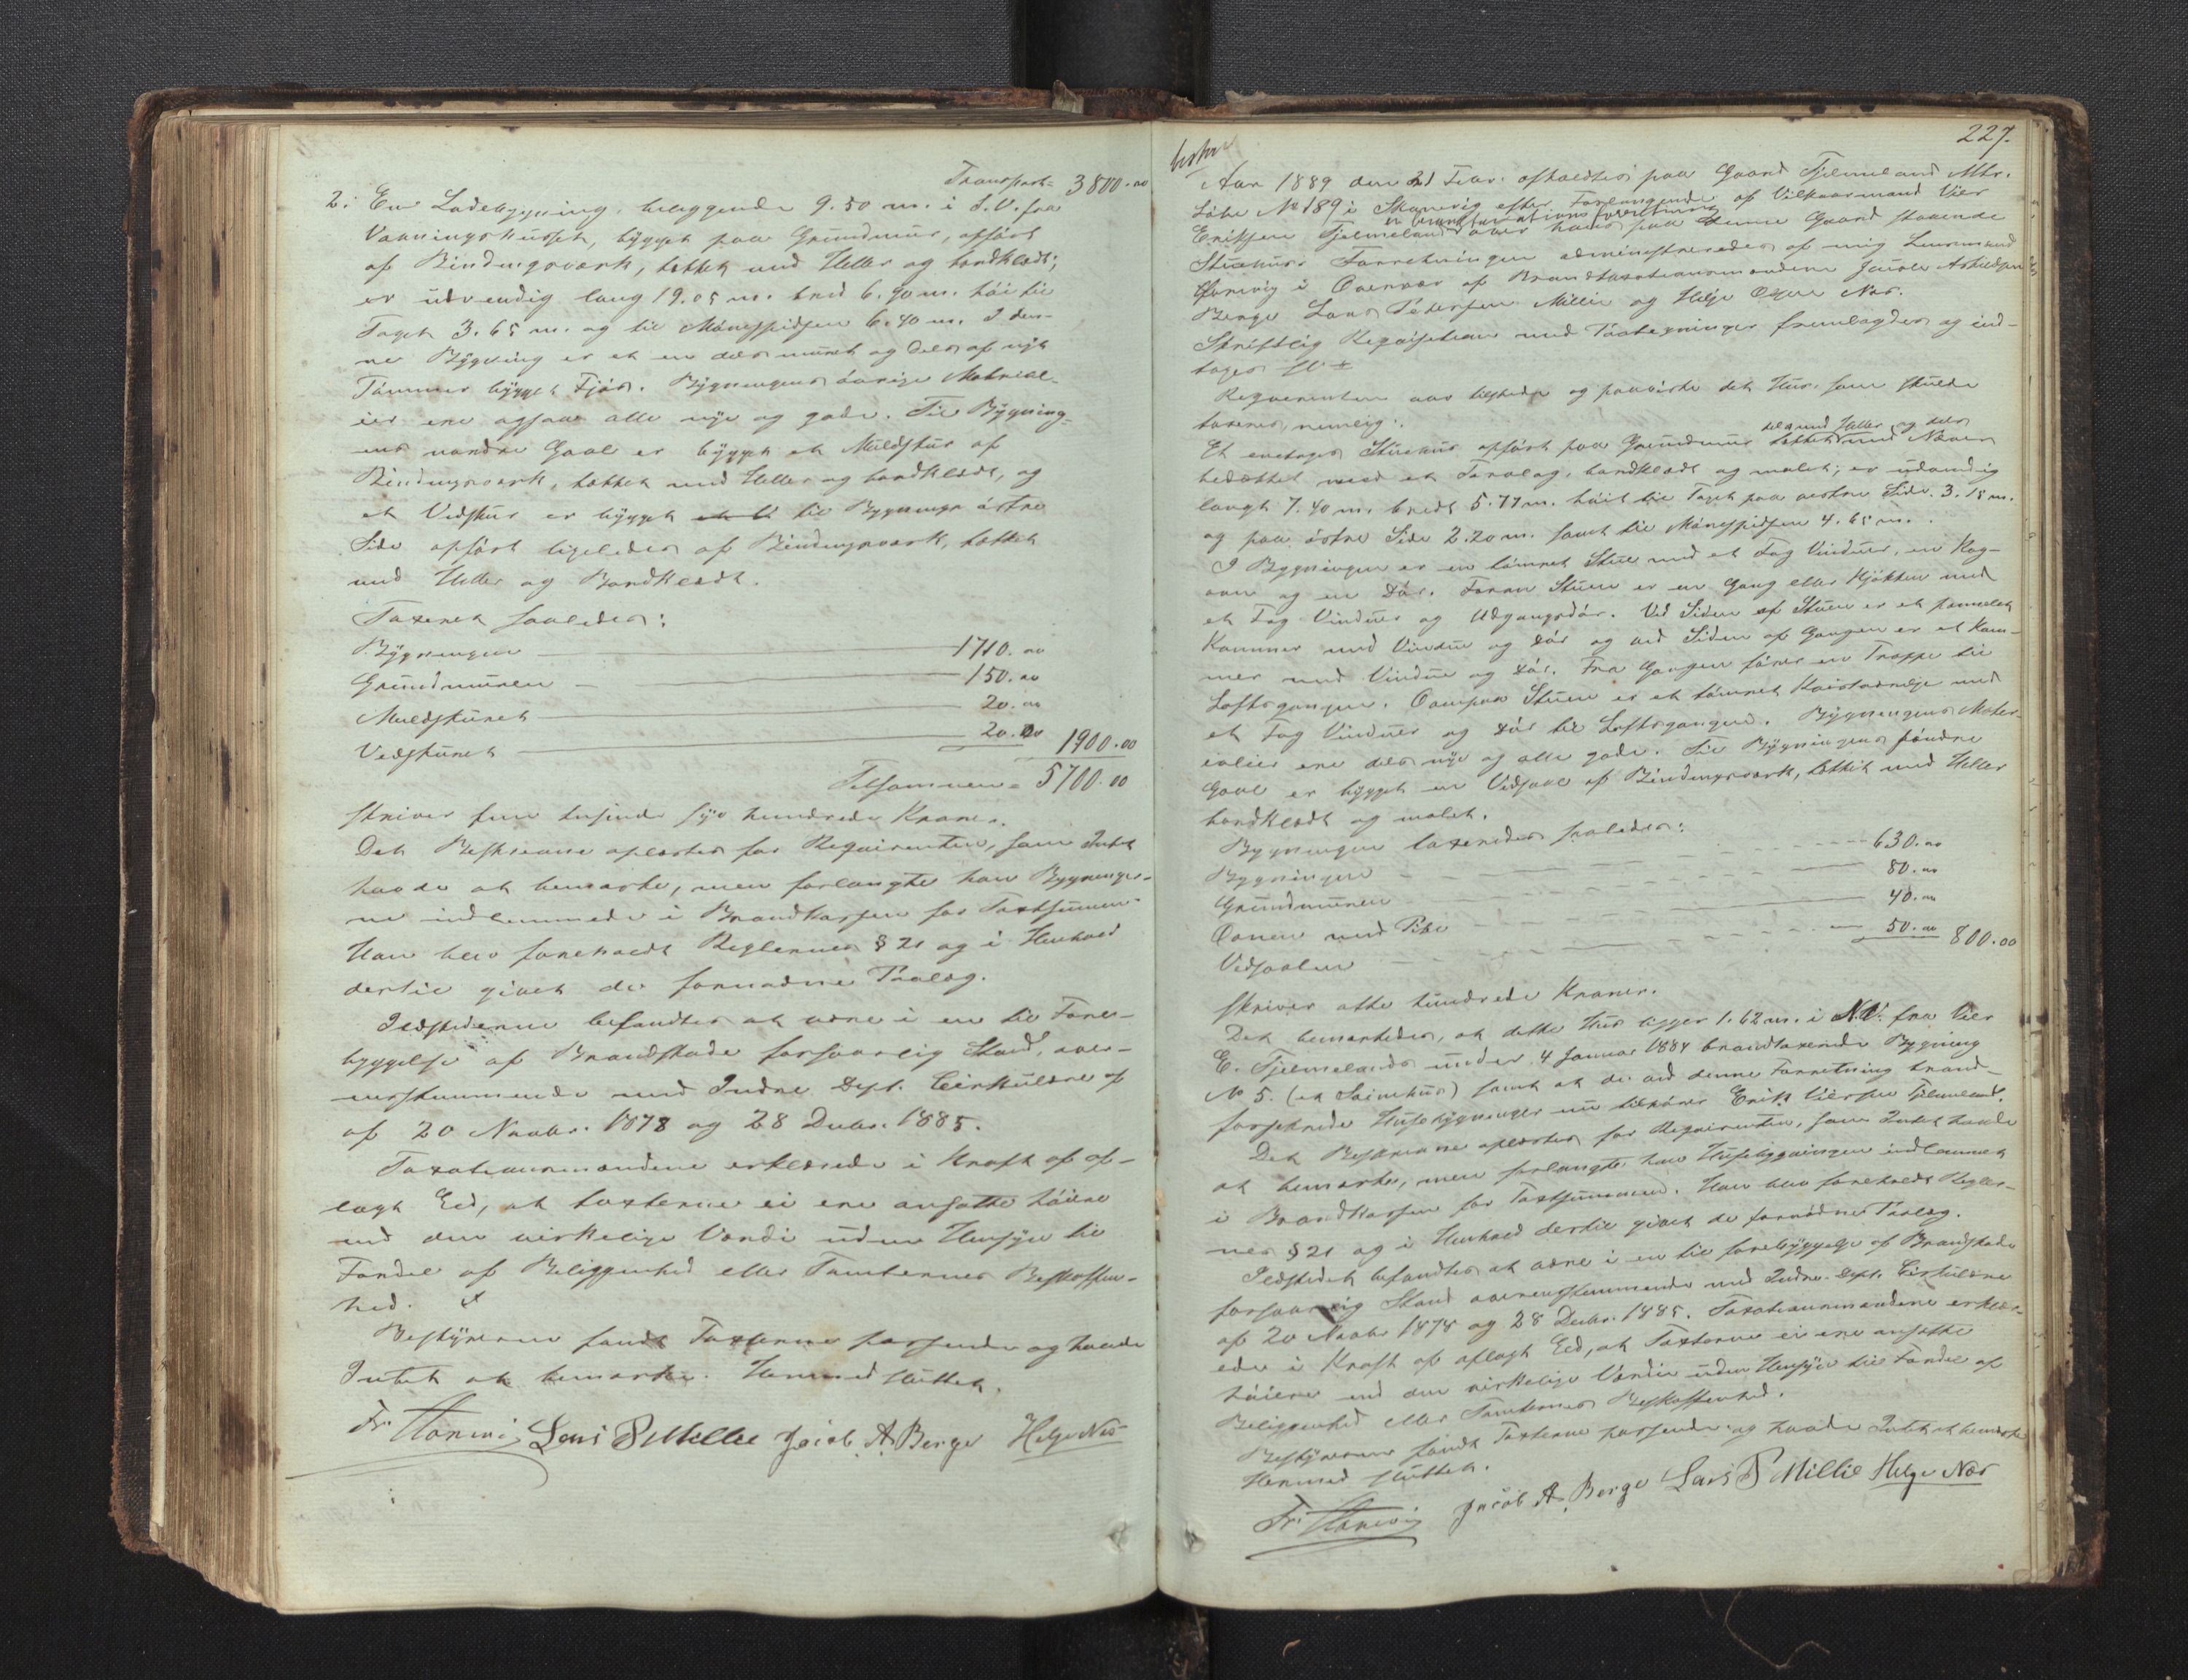 Transport = 3800.00
2. En Ladebygning, beliggende 9.50 m. i S.V. fra
Vaaningshuset, bygget paa Grundmur, opført
af Bindingsværk, tækket med Heller og bordklædt;
er udvendig lang 19.05 m. bred 6.90 m. høi til
Taget 3.65 m. og til Mønespidsen 6.40 m. I den-
ne Bygning er et en del muret og dels af nyt
Tømmer bygget Fjøs. Bygningens øvrige Material-
ier ere ogsaa alle nye og gode. Til Bygning-
ens nordre Gavl er bygget et Muldskur af
Bindingsværk, tækket med Heller og bordklædt, og
et Vedskur er bygget til Bygningens østre
Side opført ligeledes af Bindingsværk, tækket
med Heller og Bordklædt.
Taxeret saaledes:
Bygningen 1710.00
Grundmuren 150.00
Muldskuret 20.00
Vedskuret 20.00 1900.00
Tilsammen = 5700.00
skriver fem tusinde syv hundrede Kroner.
Det Beskrevne oplæstes for Reqvirenten, som Intet
havde at bemærke, men forlangte han Bygninger-
ne indlemmede i Brandkassen for Taxtsummen.
Han blev foreholdt Reglernes § 21 og i Henhold
dertil givet de fornødne Paalæg.
Ildstederne befandtes at være i en til Fore-
byggelse af Brandskade forsvarlig Stand, over-
ensstemmende med Indre Dept. Cirkulære af
af 20 Novbr. 1878 og 28 Decbr. 1885.
Taxationsmændene erklærede i Kraft af af-
lagt Eed, at taxterne ei ere ansatte høiere
end den virkelige Værdi uden Hensyn til
Fordel af Beliggenhed eller Tomternes Beskaffen-
hed.
Bestyreren fandt Taxterne passende og havde
Intet at bemærke. Hermed sluttet.
Fr. Lars P Millie Jacob A. Berge Helge Næs
227.
Aar 1889 den 21 Febr. afholdtes paa Gaard Tjelmeland Mtr.
Løbe No 189 i Skonevig efter Forlangende af Vilkaarmand Vier
en brandtaxationsforretning
Eriksen Tjelmeland over hans paa denne Gaard staaende
Stuehus. Forretningen administreredes af mig Lensmand
i Overvær af Brandtaxationsmændene Jacob Askildsen
Berge Lars Pedersen Millie og Helge Næs.
Skriftlig Reqvisition med Paategninger fremlagdes og ind-
tages
Reqvirenten var tilstede og paaviste det Hus, som skulde
taxeres, nemlig:
dels med Heller og dels
Et enetages Stuehus opført paa Grundmur tækket med Næver
bedækket med et Torvlag, bordklædt og malet; er udvendig
langt 7.40 m. bredt 5.77 m. høit til Taget paa vestre Side 3.15 m.
og paa østre Side 2.20 m. samt til Mønespidsen 4.65 m.
I Bygningen er en tømret Stue med et Fag Vinduer, en Kog-
ovn og en Dør. Foran Stuen er en Gang eller Kjøkken med
et Fag Vinduer og Udgangsdør. Ved Siden af Stuen er et panelet
Kammer med Vindue og Dør og ved Siden af Gangen er et Kam-
mer med Vindue og Dør. Fra Gangen fører en Trappe til
Loftsgangen. Ovenpaa Stuen er et tømret med
et Fag Vinduer og Dør til Loftsgangen. Bygningens Mater-
ialier ere dels nye og alle gode. Til Bygningens søndre
Gavl er bygget en Vedsval af Bindingsværk, tækket med Heller
bordklædt og malet.
Bygningen taxeredes saaledes:
Bygningen 630.00
Grundmuren 80.00
Ovnen med Pibe 40.00
Vedsvalen 50.00 800.00
skriver otte hundrede Kroner.
Det bemærkedes, at dette Hus ligger 1.62 m. i N.V. fra Vier
E. Tjelmelands under 4 Januar 1884 brandtaxerede Bygning
No 5. (et ) samt at de ved denne Forretning brand-
forsikrede Husebygninger nu tilhører Erik Viersen Tjelmeland.
Det Beskrevne oplæstes for Reqvirenten, som Intet havde
at bemærke, men forlangte han Husebygningen indlemmet
i Brandkassen for Taxtsummen. Han blev foreholdt Regler-
nes § 21 og i Henhold dertil givet de fornødne Paalæg.
Ildstedet befandtes at være i en til forebyggelse af Brandskade
forsvarlig Stand overensstemmende med Indre-Dept. Cirkulære
af 20 Novbr 1878 og 28 Decbr. 1885. Taxationsmændene erklær-
ede i Kraft af aflagt Eed, at Taxterne ei ere ansatte
høiere end den virkelige Værdi uden Hensyn til Fordel af
Beliggenhed eller Tomternes Beskaffenhed.
Bestyreren fandt Taxterne passende og havde Intet at bemærke
Hermed sluttet.
Fr. Jacob A. Berge Lars P Millie Helge Næs